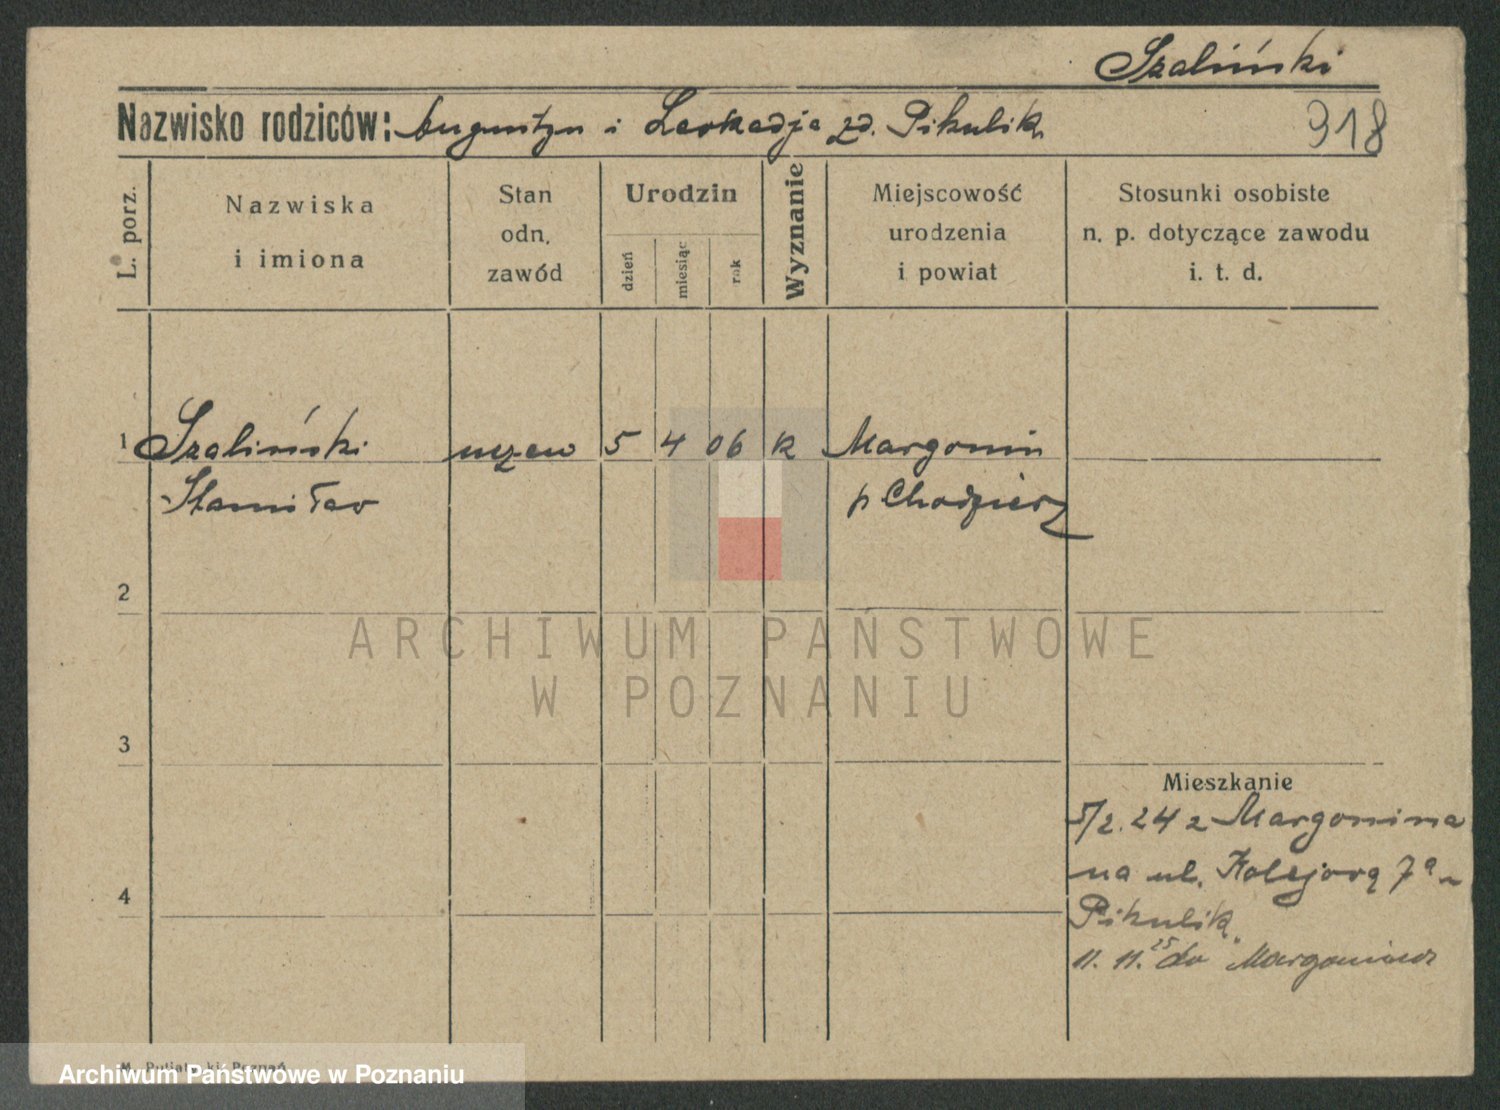 Szaliński
Nazwisko rodziców: Augustyn i Leokadja zd. Pikulik
318
L. porz.
Nazwiska
i imiona
Stan
odn.
zawód
Urodzin
dzień
miesiąc
rok
Wyznanie
Miejscowość
urodzenia
i powiat
Stosunki osobiste
n. p. dotyczące zawodu
i. t. d.
1 Szaliński uczeń 5 4 06 k Margonin
Stanisław p Chodzież
2
ARCHIWUM PAŃSTWOWE
W POZNANIU
3
Mieszkanie
5/2.24 z Margonina
na ul. Kolejową 7a
4
Pikulik
11.11.25 do Margonina
Poznań
Archiwum Państwowe w Poznaniu